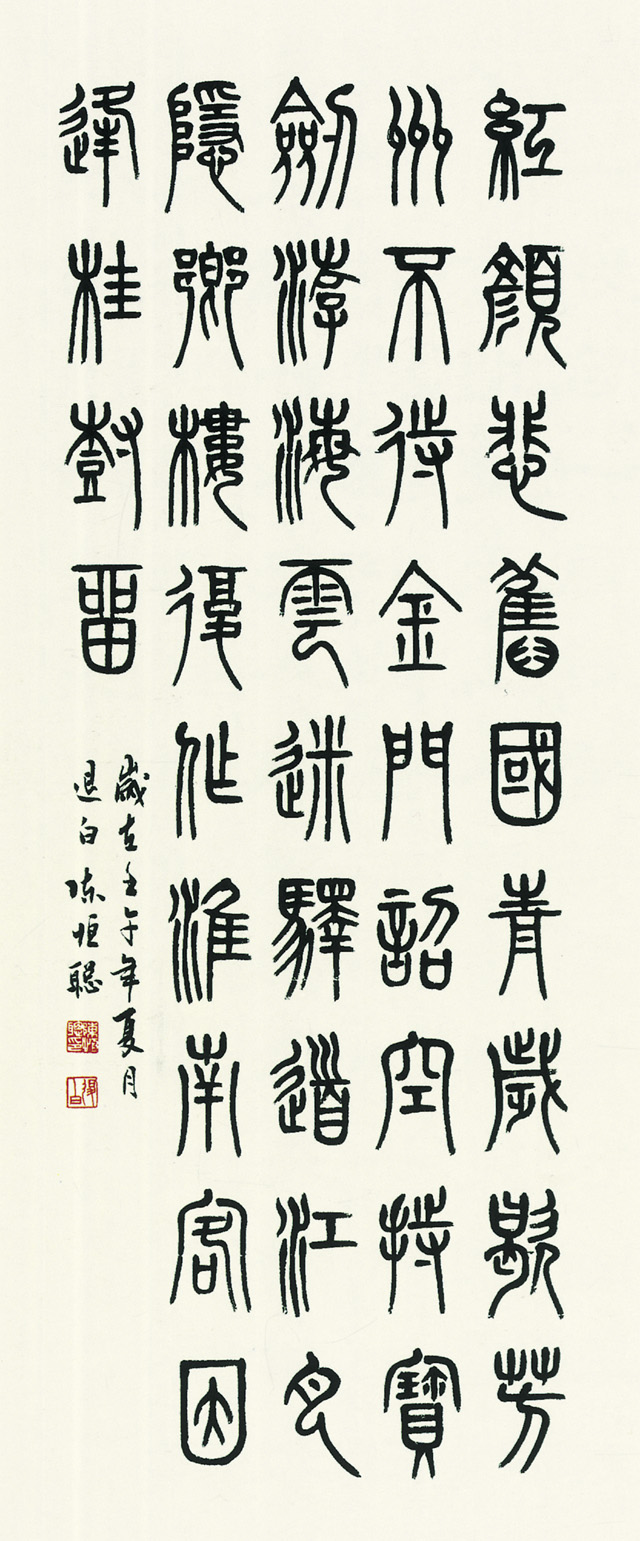 紅顏悲舊國青歲歇芳
州不待金門詔空持寶
劍游海雲迷驛道江月
隱鄉樓復作淮南客因
逢桂樹留
歲在壬午年夏月
退白陳恒聰